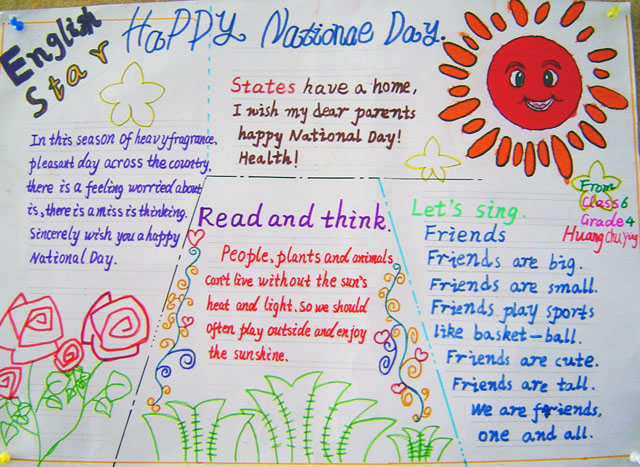 English
Star
HaPPY Nationae Day.
States have a home,
I wish my dear parents
happy National Day!
Health!
In this season of heavy fragrance,
pleasant day across the country,
there is a feeling worried about
is, there is a miss is thinking.
Sincerely wish you a happy
National Day.
Read and think.
People, plants and animals
can't live without the sun's
heat and light. So we should
often play outside and enjoy
the sunshine.
Let's sing.
Friends
Friends are big.
Friends are small.
Friends play sports
like basket-ball.
Friends are cute.
Friends are tall.
We are friends,
one and all.
From
Class 6
Grade 4
Huang Chu Ying